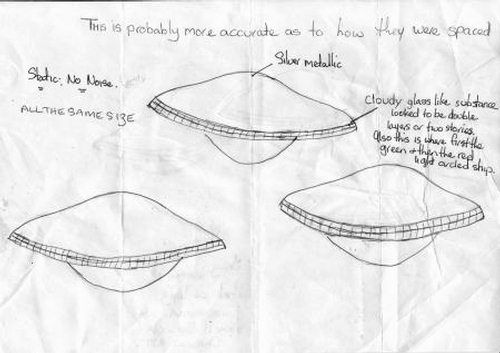 THIS is probably more accurate as to how they were spaced
Silver metallic
Static. No Noise.
ALL THE SAME SIZE
Cloudy glass like substance
looked to be double
layers or two stories.
Also this is where first the
green + then the red
light circled ship.